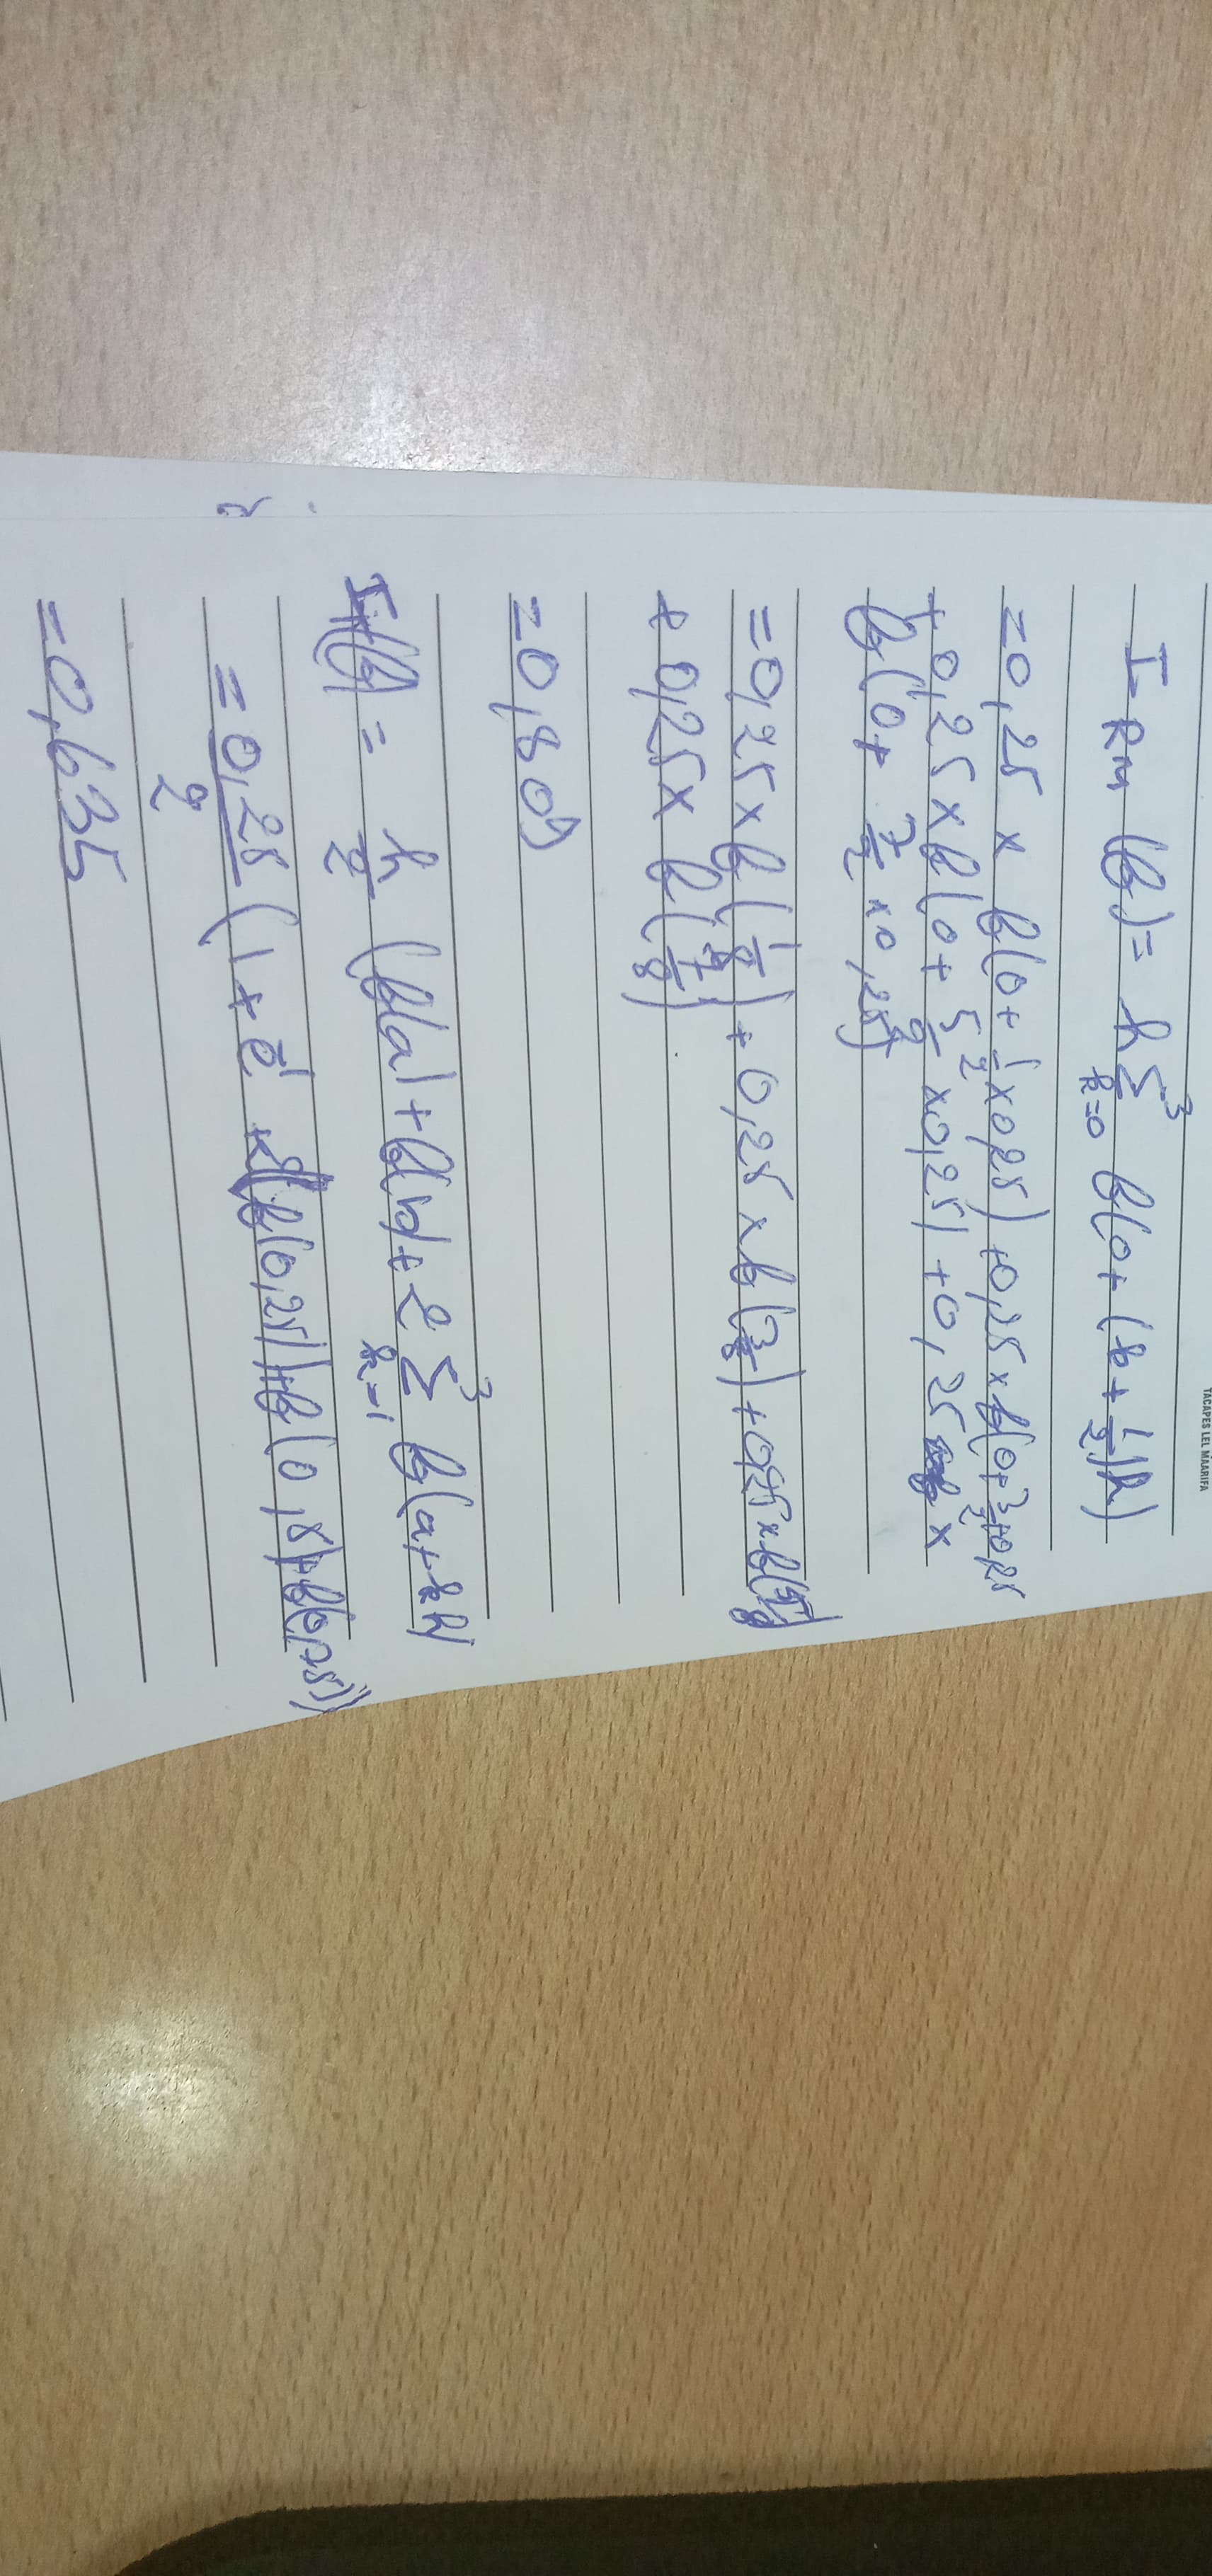 TACAPES LEL MAARIFA
I RM (f) = h Σ³ k=0 f(0 + (k + 1/2) h)
= 0,25 x f(0 + 1/2 x 0,25) + 0,25 x f(0 + 3/2 x 0,25
+ 0,25 x f(0 + 5/2 x 0,25) + 0,25 x
f(0 + 7/2 x 0,25)
= 0,25 x f(1/8) + 0,25 x f(3/8) + 0,25 x f(5/8)
+ 0,25 x f(7/8)
= 0,809
IT(f) = h/2 (f(a) + f(b) + 2 Σ³ k=1 f(a + kh)
= 0,25/2 (1 + e⁻¹ + 2(f(0,25) + f(0,5) + f(0,75)))
= 0,635